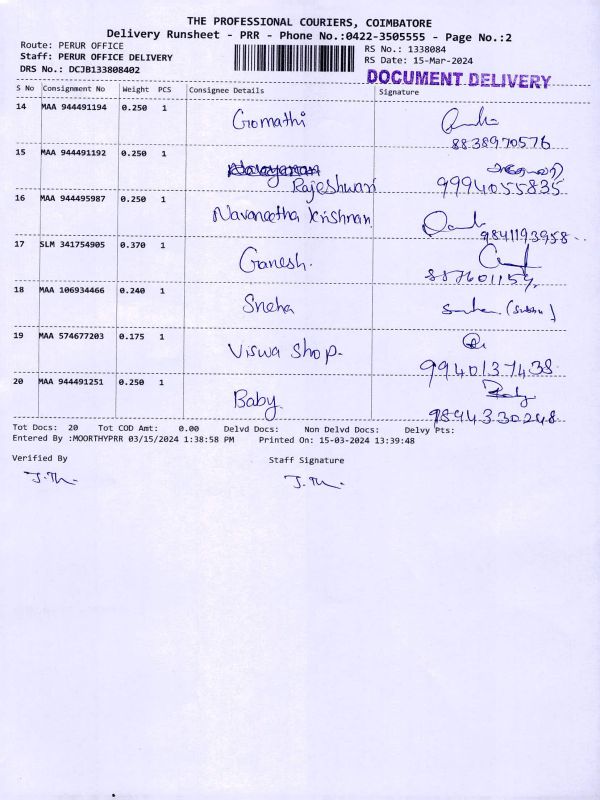 THE PROFESSIONAL COURIERS, COIMBATORE
Delivery Runsheet - PRR - Phone No.:0422-3505555 - Page No.:2
Route: PERUR OFFICE RS No.: 1338084
Staff: PERUR OFFICE DELIVERY RS Date: 15-Mar-2024
DRS No.: DCJB133808402 DOCUMENT DELIVERY
S No Consignment No Weight PCS Consignee Details Signature
14 MAA 944491194 0.250 1 Gomathi
8838970576
15 MAA 944491192 0.250 1 Narayanan
Rajeshwari 9994055835
16 MAA 944495987 0.250 1 Navaneetha Krishnan
9841193958
17 SLM 341754905 0.370 1 Ganesh.
18 MAA 106934466 0.240 1 Sneha
19 MAA 574677203 0.175 1 Viswa Shop.
9940137438
20 MAA 944491251 0.250 1 Baby Baby
9894330248
Tot Docs: 20 Tot COD Amt: 0.00 Delvd Docs: Non Delvd Docs: Delvy Pts:
Entered By :MOORTHYPRR 03/15/2024 1:38:58 PM Printed On: 15-03-2024 13:39:48
Verified By Staff Signature